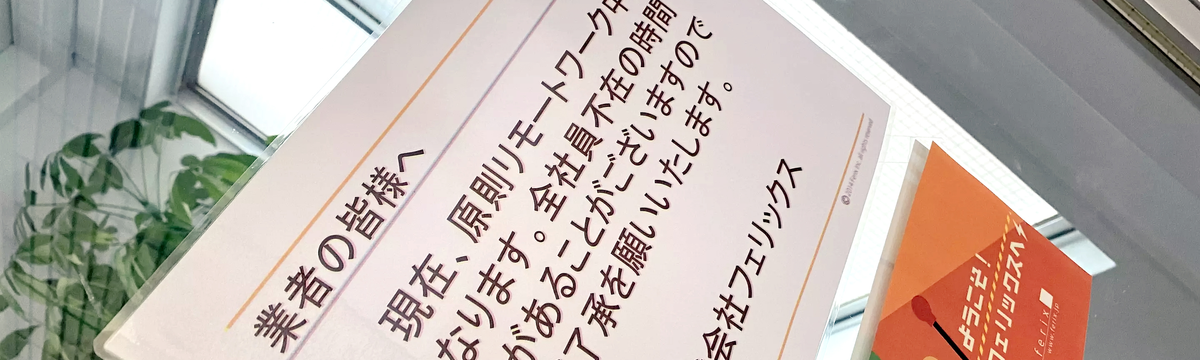 業者の皆様へ
現在、原則リモートワーク中
なります。全社員不在の時間
があることがございますので
了承を願いいたします。
会社フェリックス
ようこそ!
フェリックスへ
ferix
www.ferix.jp